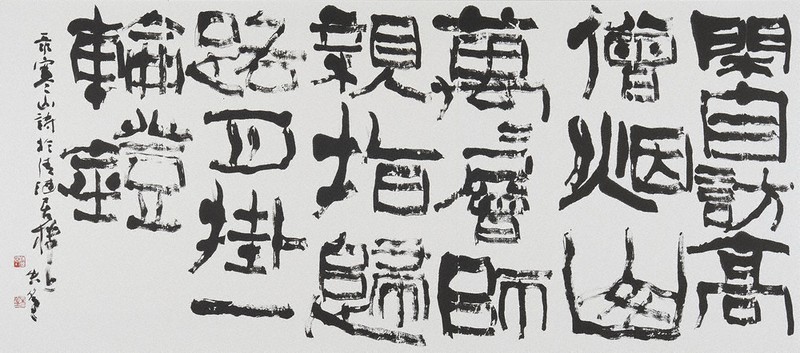 閑自訪高
僧烟山
萬〻層師
親指歸
路月掛一
輪鐙
寒山詩於清